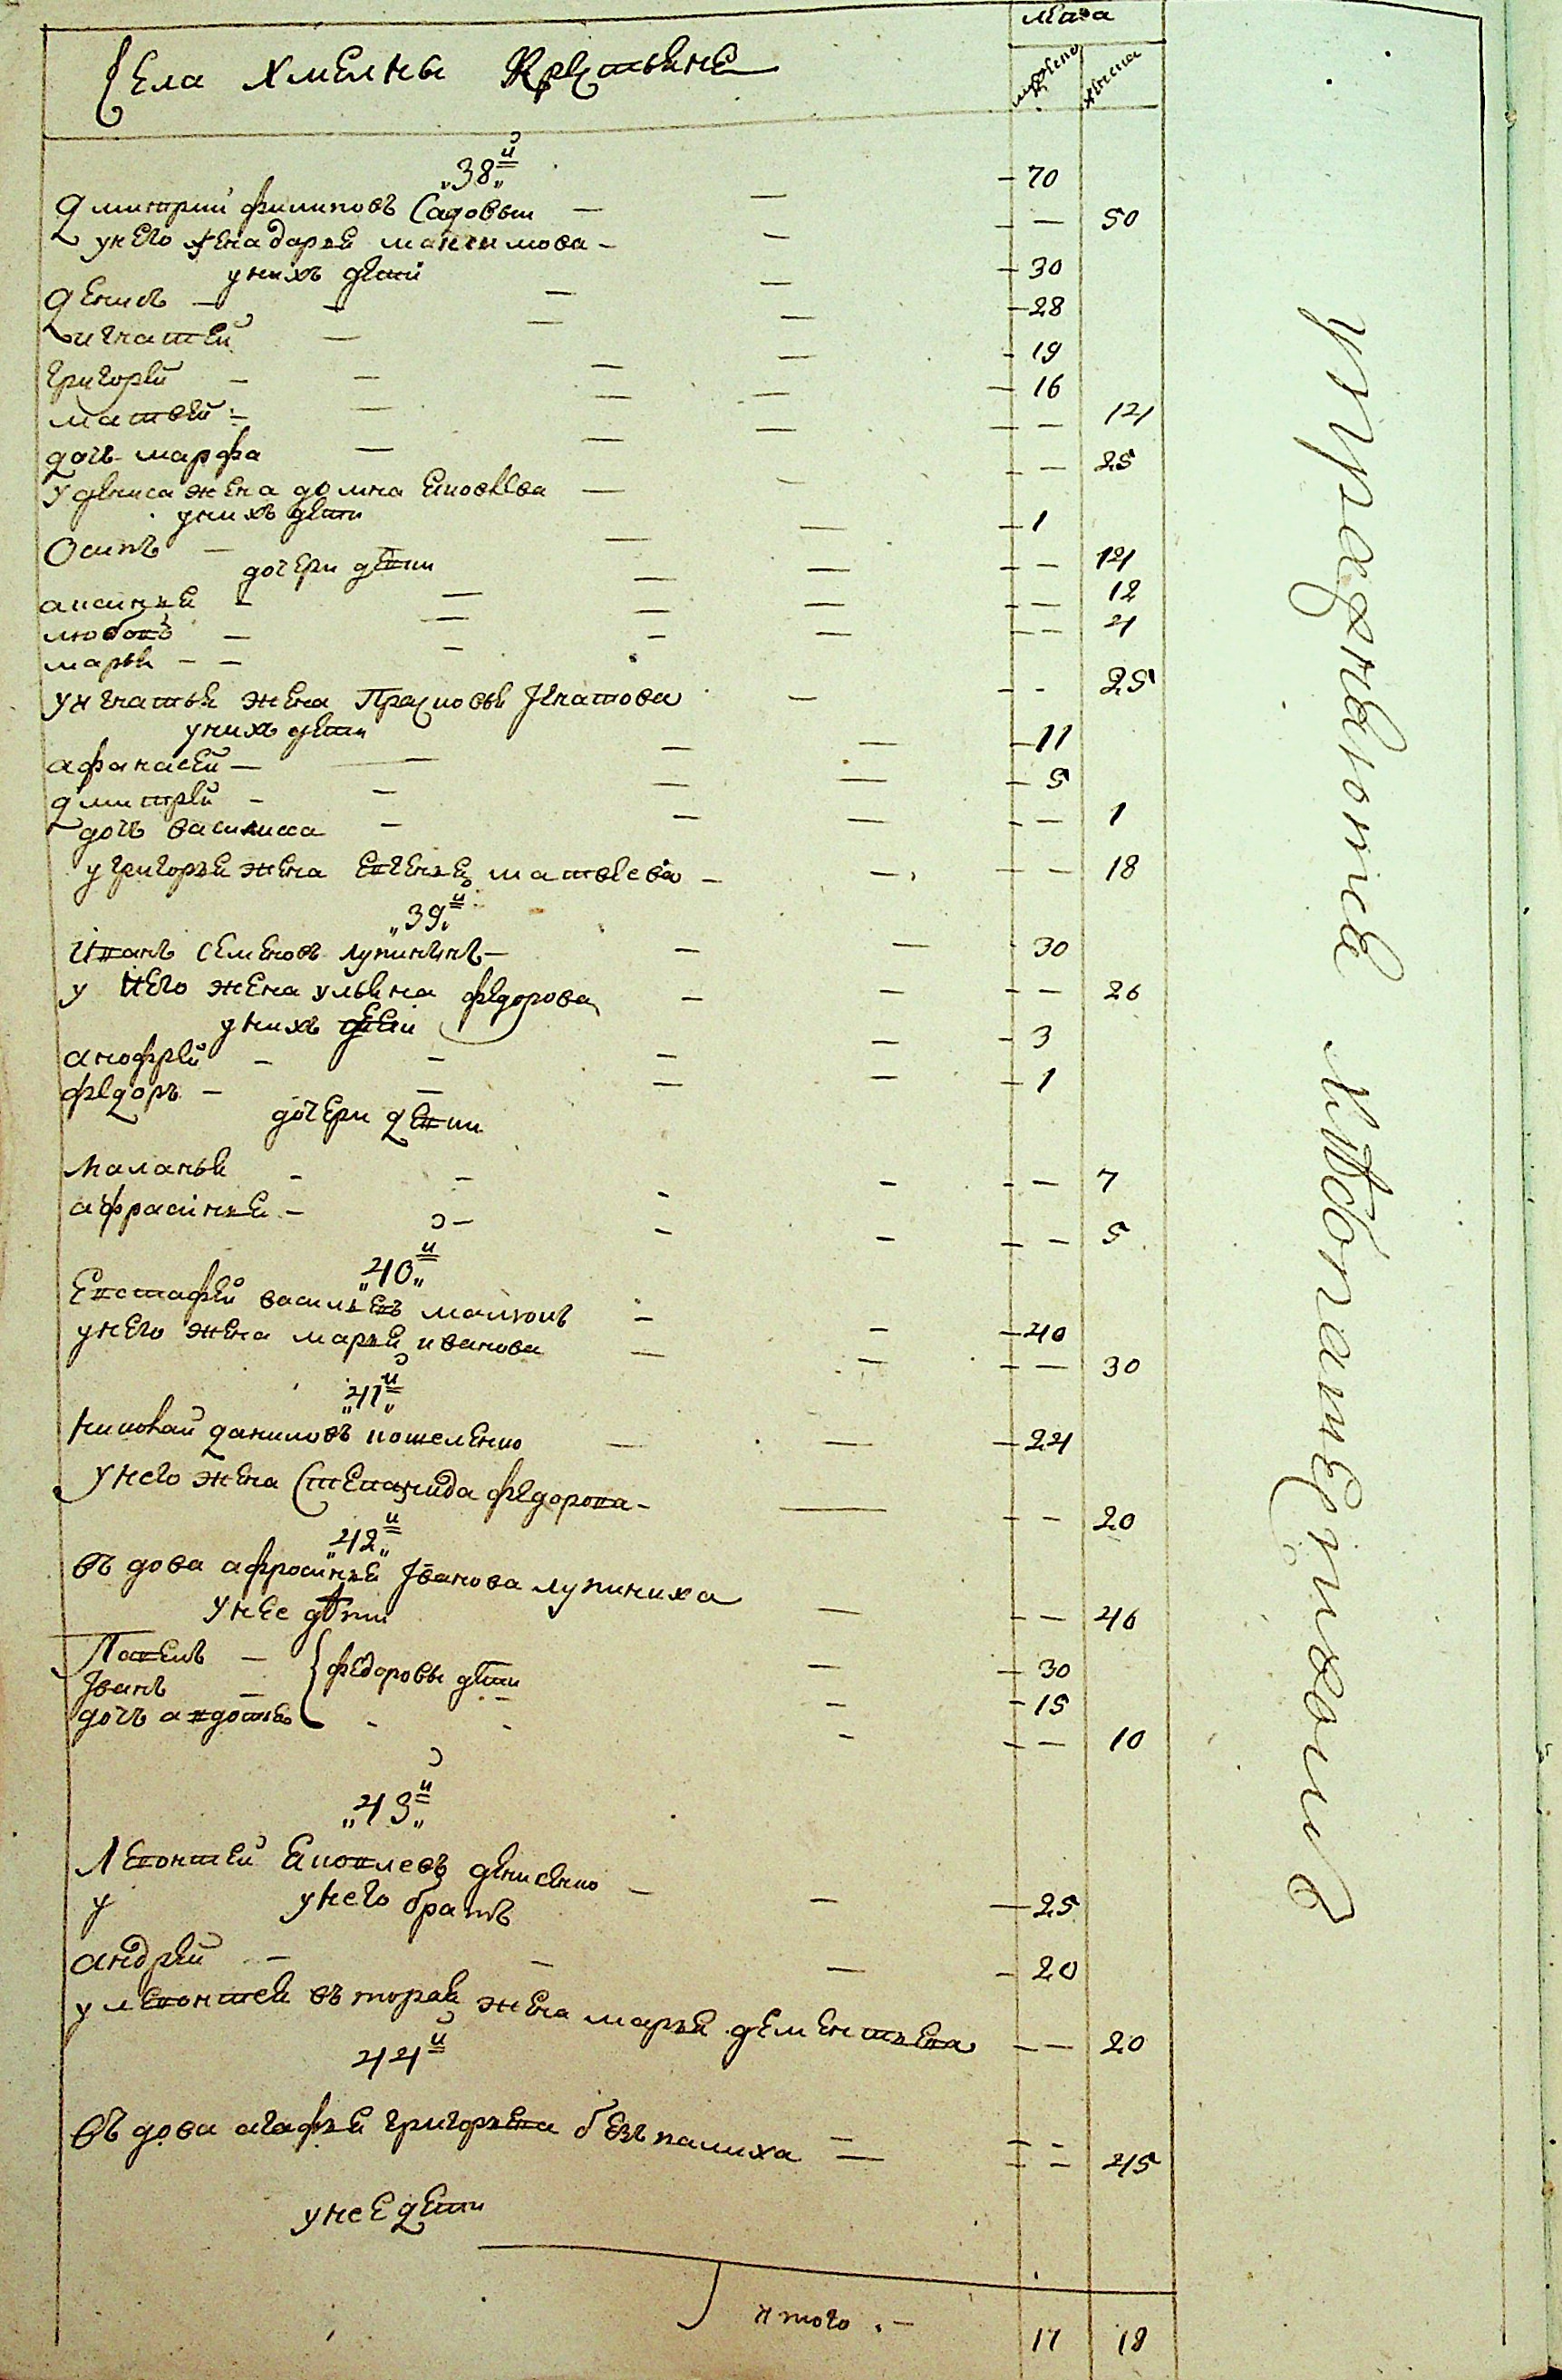 Села Хмелны Крестьяне
лета
мужено
женена
„38„й
Дмитрий филиповъ Садовыи — — — 70
у него жена дарья максимова — — — — 50
у нихъ дети
Денисъ — — — — — 30
игнатей — — — — 28
григорей — — — — — 19
матвей — — — — — 16
дочь марфа — — — — — 14
у дениса жена домна яковлева — — — — 25
у нихъ дети
Осипъ — — — — 1
дочери девки
аксинья — — — — — — 14
любовъ — — — — — — 12
марья — — — — — — — 4
у игнатья жена Прасковья Iгнатова — — — 25
у нихъ дети
афанасей — — — — — 11
дмитрей — — — — — 5
дочь василиса — — — — — 1
у григорья жена евгенья матвеева — — — — 18
„39„й
Иванъ семеновъ лупининъ — — — 30
у него жена ульяна федорова — — — — 26
у нихъ дети
анофрей — — — — — 3
федоръ — — — — — 1
дочери девки
маланья — — — — — 7
афросинья — — — — — — 5
„40„й
Евстафей васильевъ малковъ — — — 40
у него жена марья иванова — — — — 30
„41„й
николай даниловъ кошеленко — — — 24
у него жена Степанида федорова — — — — 20
„42„й
въдова афросинья Iванова лупиниха — — — 46
у нее дѣти
Павелъ — федоровы дети — — 30
Iванъ — — — — 15
дочь авдотья — — — — — 10
„43„й
Леонтей яковлевъ денисенко — — — 25
у у него братъ
андрей — — — — 20
у леонтея въторая жена марья дементьева — — 20
44й
въдова агафья григорьева безпалиха — — — 45
у нее дети
итого — 17 18
упразненное